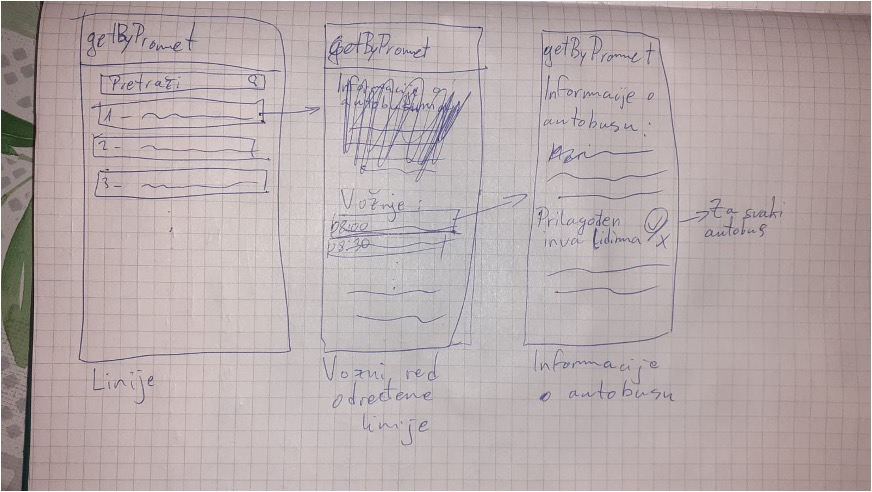 getByPromet
Pretraži
1 -
2 -
3 -
Linije
getByPromet
Informacije o
Vožnje :
08:00
08:30
Vozni red
određene
linije
getByPromet
Informacije o
autobusu :
Prilagođen
invalidima
Za svaki
autobus
Informacije
o autobusu